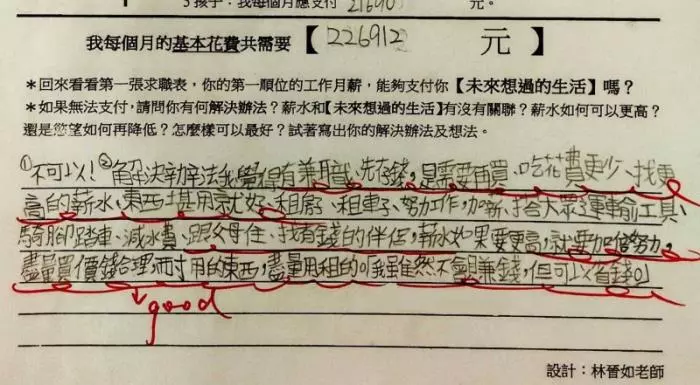 5 孩子：我每個月應支付 21690 元。
我每個月的基本花費共需要【 226912 元 】
＊回來看看第一張求職表，你的第一順位的工作月薪，能夠支付你【未來想過的生活】嗎？
＊如果無法支付，請問你有何解決辦法？薪水和【未來想過的生活】有沒有關聯？薪水如何可以更高？
還是慾望如何再降低？怎麼樣可以最好？試著寫出你的解決辦法及想法。
①不可以！②解決辦法我覺得有兼職、先存錢，是需要再買、吃花費更少、找更
高的薪水、東西堪用就好、租房子、租車子、努力工作，加薪、搭大眾運輸工具、
騎腳踏車、減水費、跟父母住、找有錢的伴侶，薪水如果要更高，就要加倍努力，
盡量買價錢合理，耐用的東西，盡量用租的，我雖然不會賺錢，但可以省錢
good
設計：林晉如老師